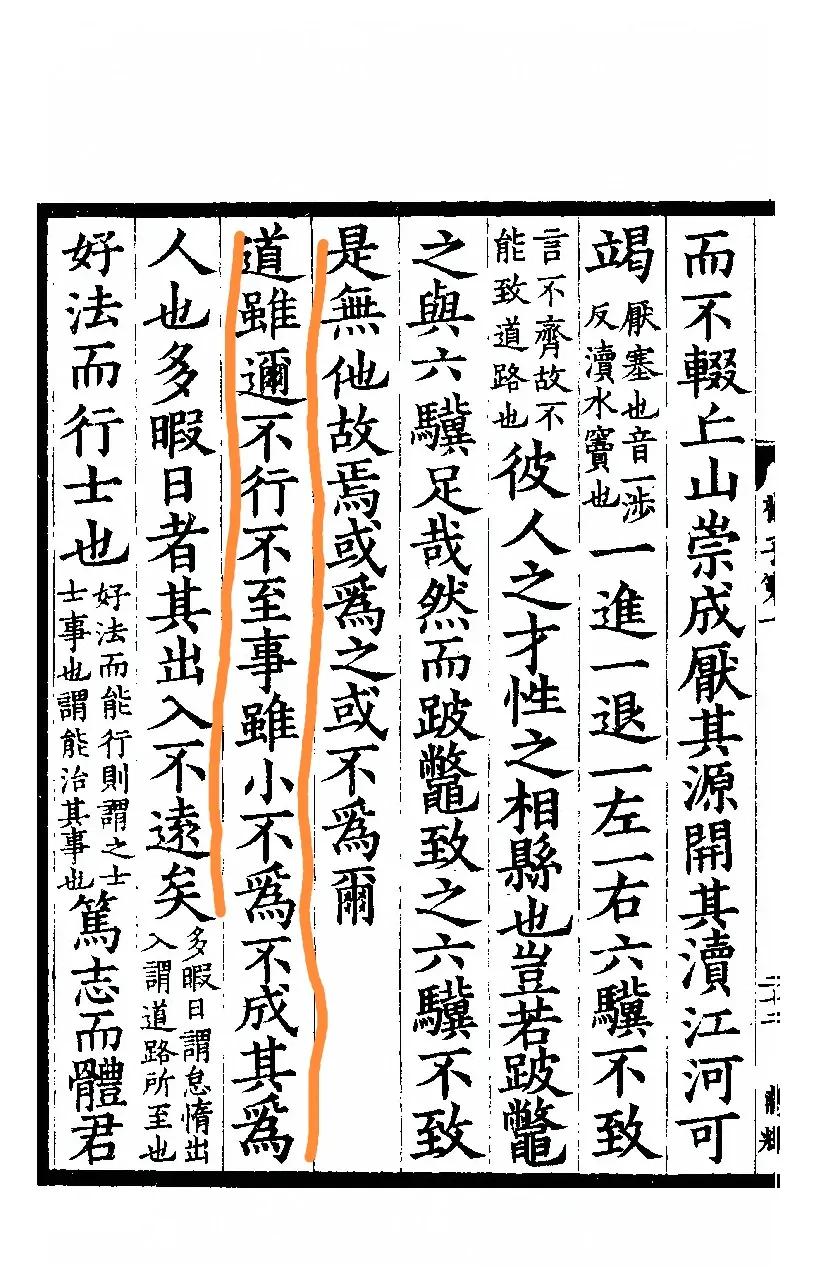 而不輟丘山崇成厭其源開其瀆江河可
竭
厭塞也音一涉
反瀆水竇也
一進一退一左一右六驥不致
言不齊故不
能致道路也
彼人之才性之相縣也豈若跛鼈
之與六驥足哉然而跛鼈致之六驥不致
是無他故焉或爲之或不爲爾
道雖邇不行不至事雖小不爲不成其爲
人也多暇日者其出入不遠矣
多暇日謂怠惰出
入謂道路所至也
好法而行士也
好法而能行則謂之士
士事也謂能治其事也
篤志而體君